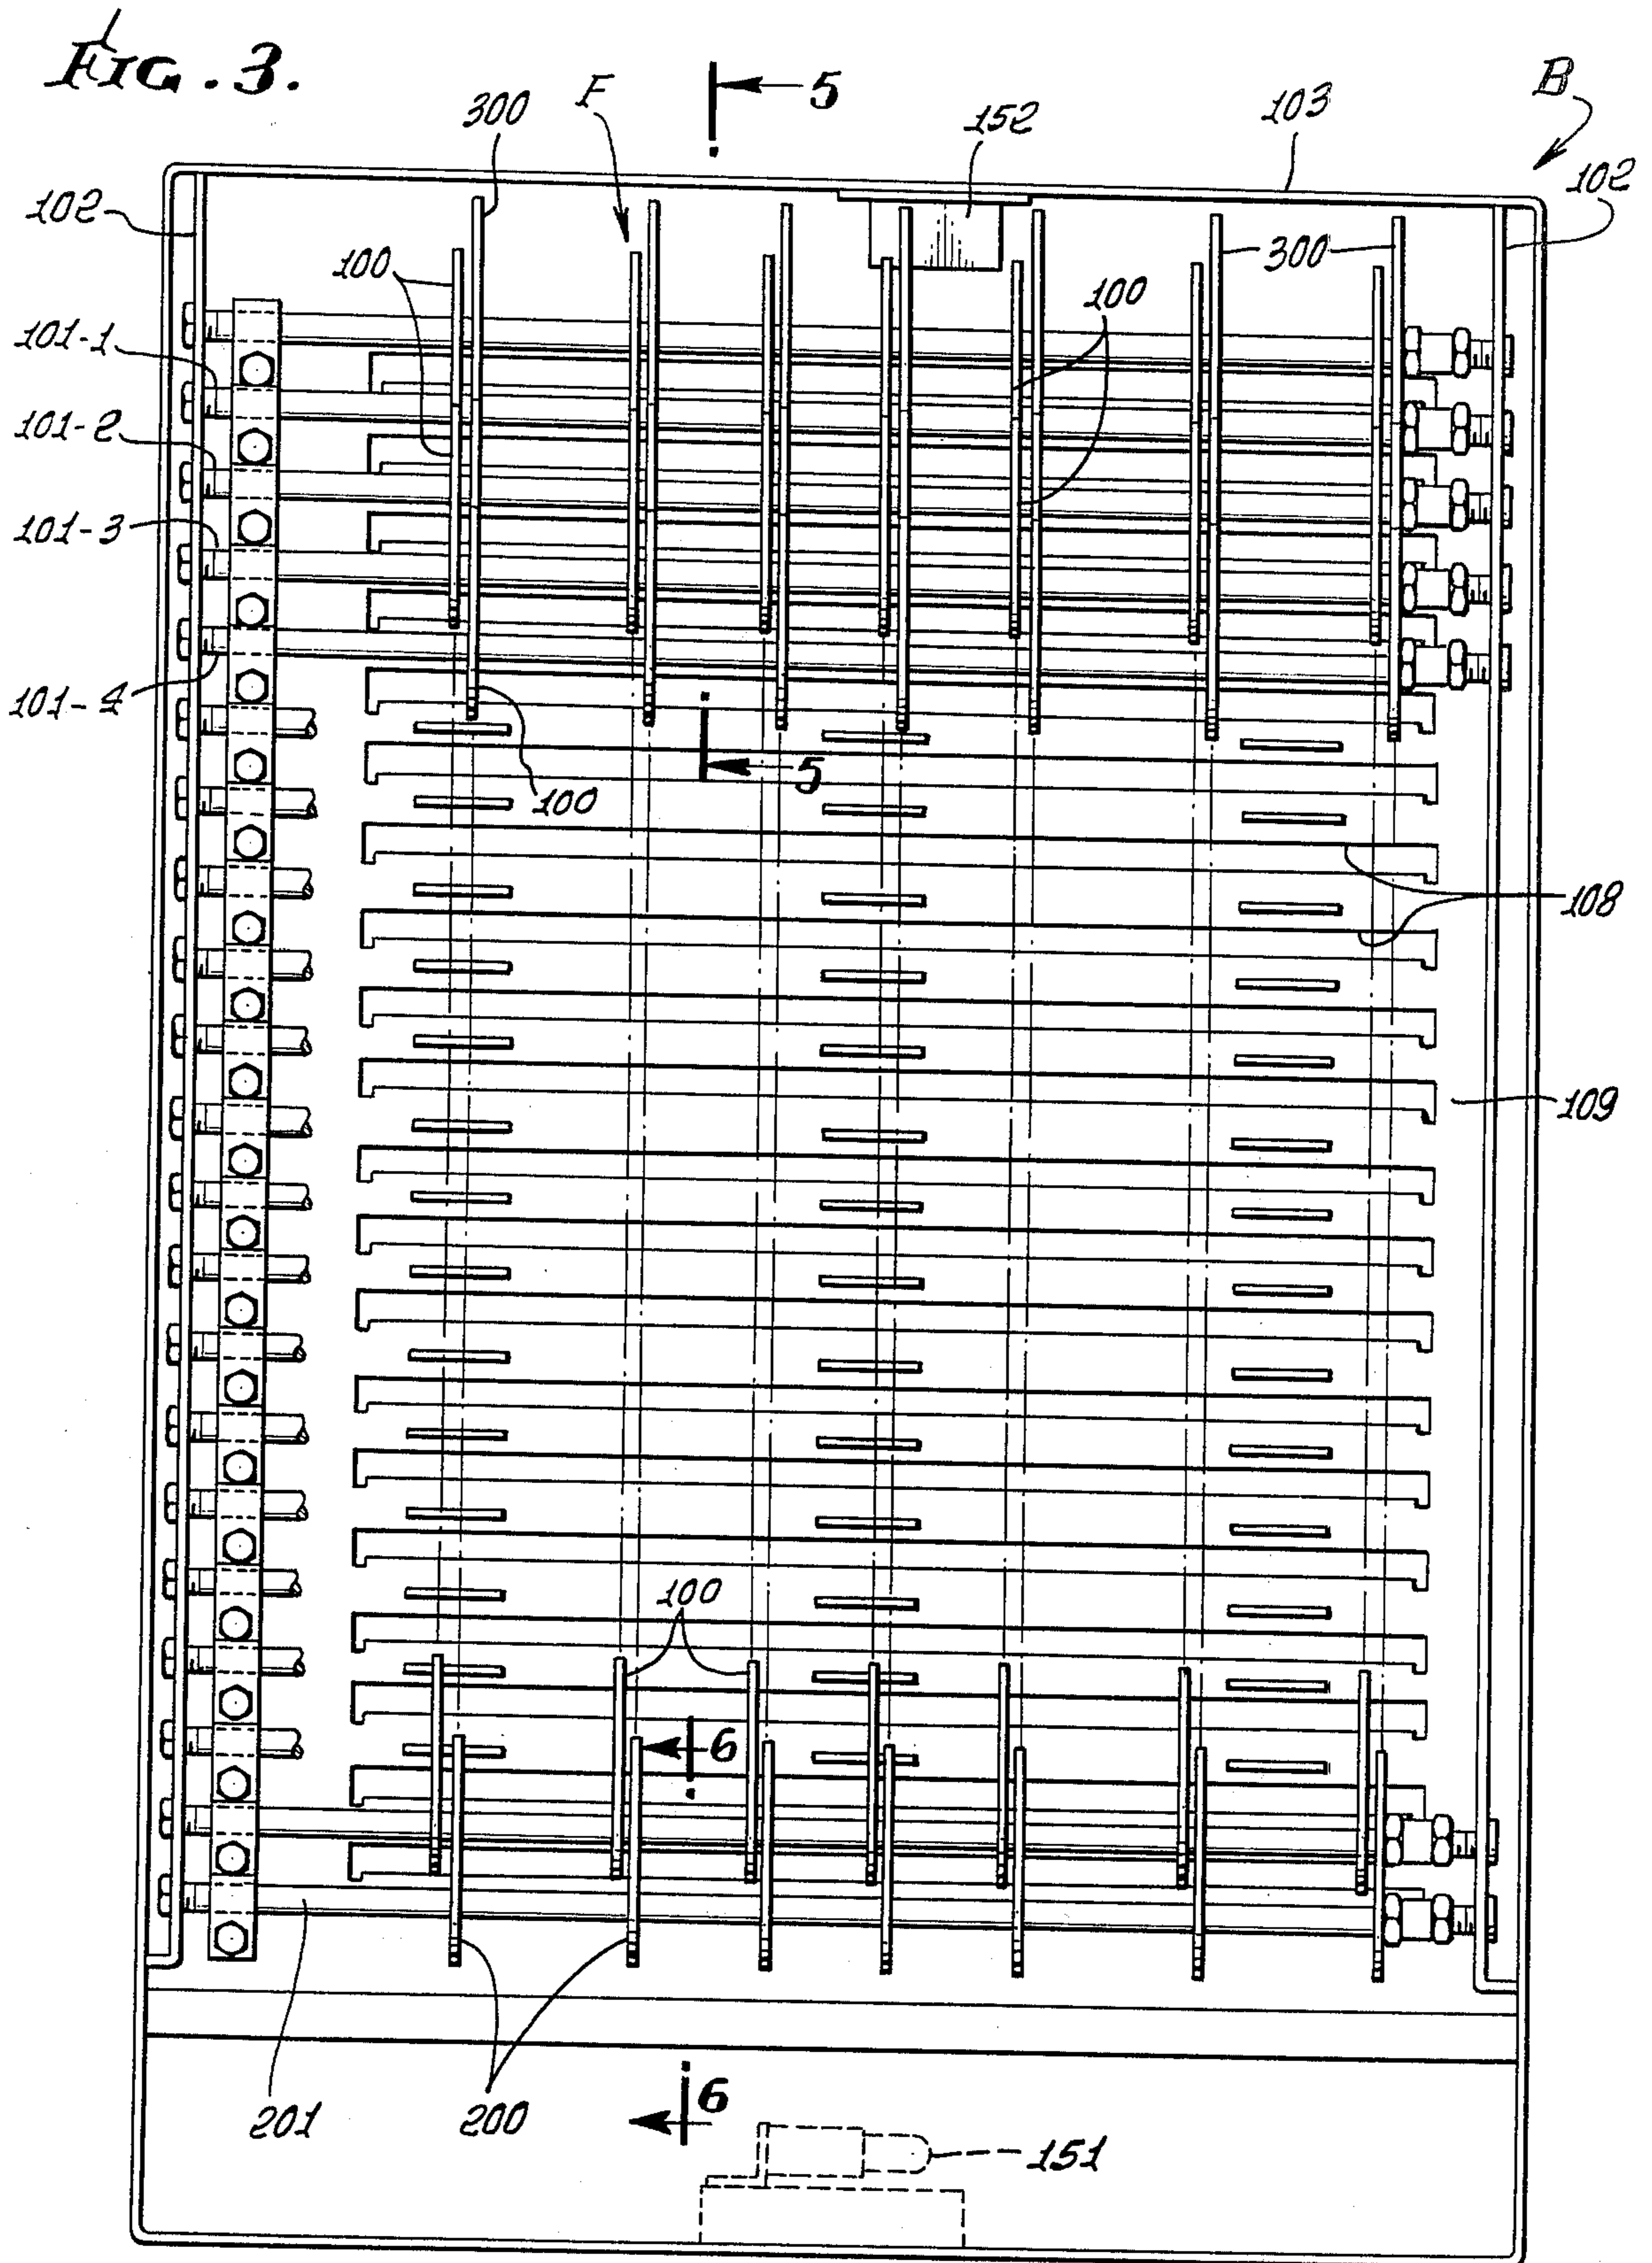 FIG. 3.
5
F
B
300
152
103
102
102
100
300
100
101-1
101-2
101-3
101-4
5
100
108
109
100
6
201
200
6
151